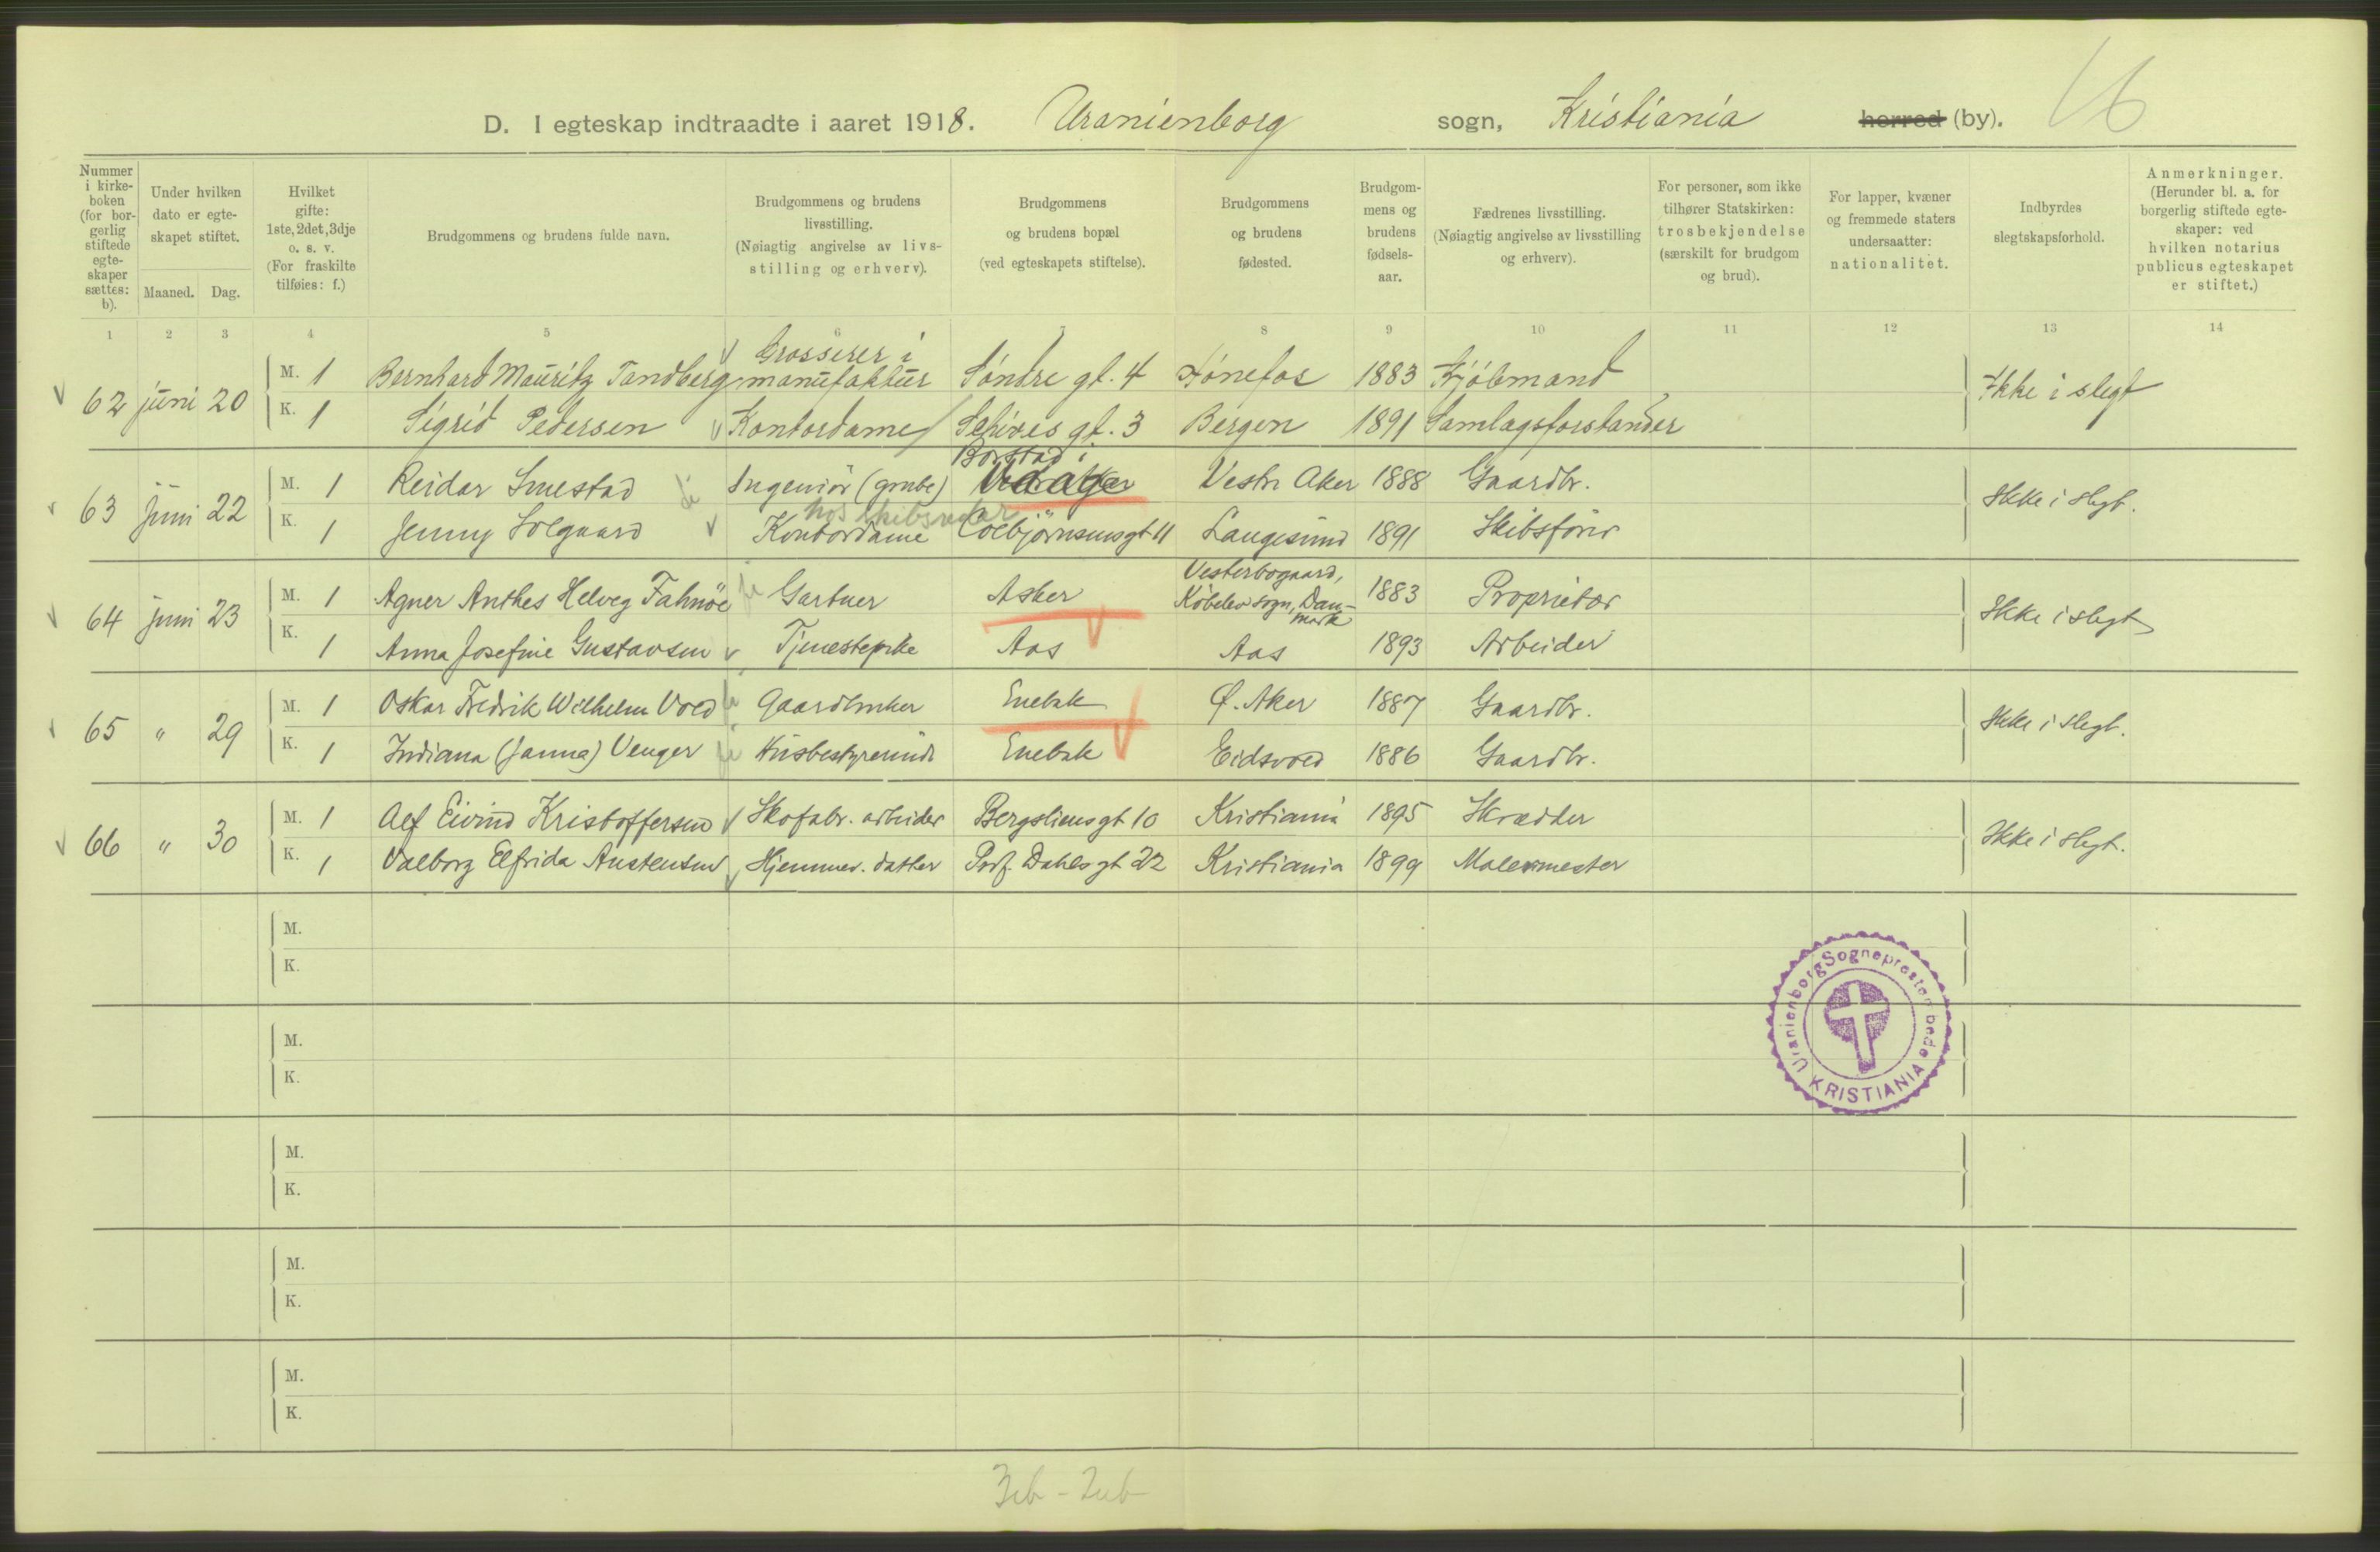 D. I egteskap indtraadte i aaret 1918. Uranienborg sogn, Kristiania herred (by).
Nummer i kirke- boken (for bor- gerlig stiftede egte- skaper sættes: b).
Under hvilken dato er egte- skapet stiftet.
Maaned. Dag.
Hvilket gifte: 1ste, 2det, 3dje o. s. v. (For fraskilte tilføies: f.)
Brudgommens og brudens fulde navn.
Brudgommens og brudens livsstilling. (Nøiagtig angivelse av livs- stilling og erhverv).
Brudgommens og brudens bopæl (ved egteskapets stiftelse).
Brudgommens og brudens fødested.
Brudgom- mens og brudens fødsels- aar.
Fædrenes livsstilling. (Nøiagtig angivelse av livsstilling og erhverv).
For personer, som ikke tilhører Statskirken: trosbekjendelse (særskilt for brudgom og brud).
For lapper, kvæner og fremmede staters undersaatter: nationalitet.
Indbyrdes slegtskapsforhold.
Anmerkninger. (Herunder bl. a. for borgerlig stiftede egte- skaper: ved hvilken notarius publicus egteskapet er stiftet.)
1 2 3 4 5 6 7 8 9 10 11 12 13 14
62 juni 20 M. 1 Bernhard Mauritz Tandberg Grosserer i manufaktur Søndre gt. 4 Hønefos 1883 Kjøbmand Ikke i slegt
K. 1 Sigrid Pedersen Kontordame Schives gt. 3 Bergen 1891 Samlagsforstander
63 juni 22 M. 1 Reidar Smestad Ingeniør (grube) Borstad i Vestre Aker 1888 Gaardbr. Ikke i slegt.
K. 1 Jenny Solgaard Kontordame hos skibsreder Colbjørnsensgt 11 Langesund 1891 Skibsfører
64 juni 23 M. 1 Agner Anthes Helveg Fahnøe Gartner Asker Vesterbogaard, Købelev sogn, Dan- mark 1883 Proprietær Ikke i slegt
K. 1 Anna Josefine Gustavsen Tjenestepike Aas Aas 1893 Arbeider
65 " 29 M. 1 Oskar Fredrik Wilhelm Vold Gaardbruker Enebak Ø. Aker 1887 Gaardbr. Ikke i slegt.
K. 1 Indiana (Janna) Venger Husbestyrerinde Enebak Eidsvold 1886 Gaardbr.
66 " 30 M. 1 Alf Eivind Kristoffersen Skofabr. arbeider Bergsliensgt 10 Kristiania 1895 Skrædder Ikke i slegt.
K. 1 Valborg Elfrida Austensen Hjemmev. datter Prof. Dahls gt 22 Kristiania 1899 Malermester
M.
K.
M.
K.
M.
K.
M.
K.
M.
K.
Uranienborg Sogneprestembede
KRISTIANIA